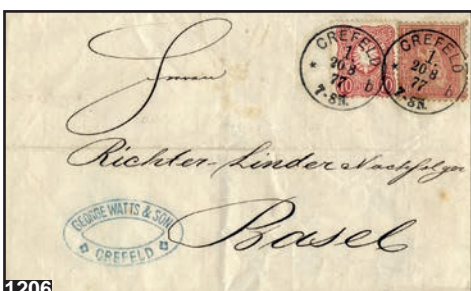 CREFELD
1.
20 8
77 b
7-8N.
CREFELD
1.
20 8
77 b
7-8N.
10
Herren
Richter-Linder Nachfolger
GEORGE WATTS & SON
CREFELD
Basel
1206